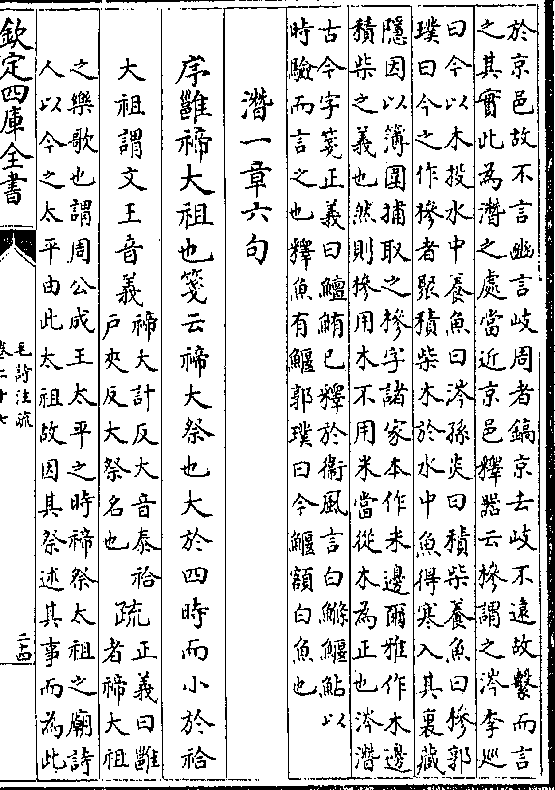 於京邑故不言豳言岐周者鎬京去岐不遠故繫而言
之其實此為潛之處當近京邑釋器云椮謂之涔李巡
曰今以木投水中養魚曰涔孫炎曰積柴養魚曰椮郭
璞曰今之作椮者聚積柴木於水中魚得寒入其裏藏
隱因以簿圍捕取之椮字諸家本作米邊爾雅作木邊
積柴之義也然則椮用木不用米當從木為正也涔潛
古今字箋正義曰鱣鮪已釋於衛風言白鰷鰋鮎以
時驗而言之也釋魚有鰋郭璞曰今鰋額白魚也
潛一章六句
序雝禘大祖也箋云禘大祭也大於四時而小於祫
大祖謂文王音義禘大計反大音泰祫户夾反大祭名也疏正義曰雝者禘大祖
之樂歌也謂周公成王太平之時禘祭太祖之廟詩
人以今之太平由此太祖故因其祭述其事而為此
欽定四庫全書
毛詩注疏
卷二十七
二十四